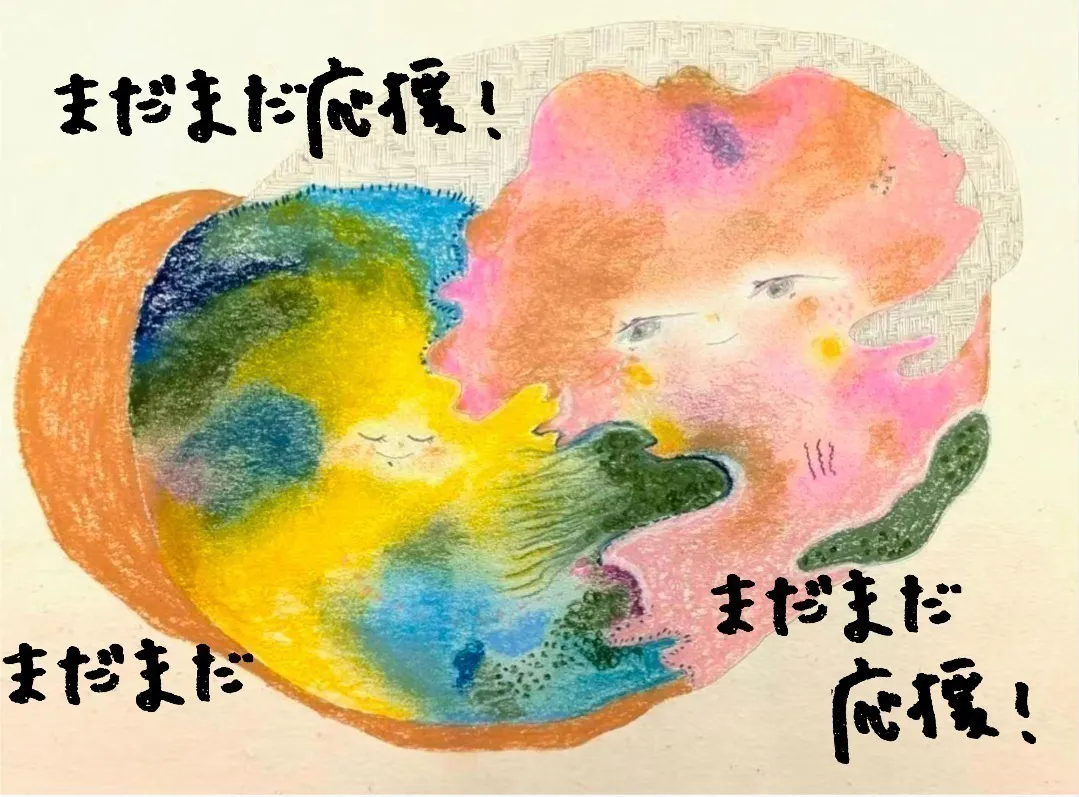 まだまだ応援!
まだまだ
まだまだ
応援!